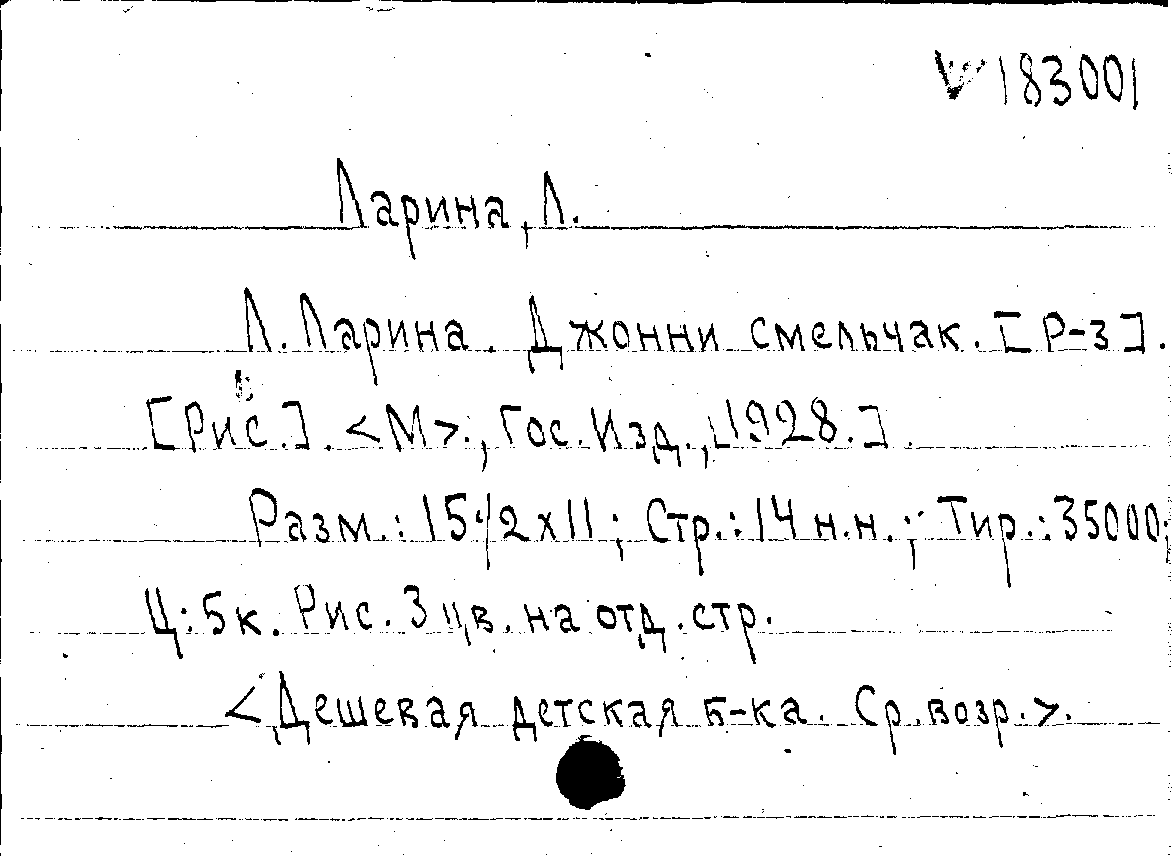 V 183001
Ларина, Л.
Л. Ларина. Джонни смельчак. [Р-з].
[Рис.]. <М>., Гос. Изд., [1928.].
Разм.: 15 1/2 x 11; Стр.: 14 н.н.; Тир.: 35000;
Ц: 5 к. Рис. 3 цв. на отд. стр.
<Дешевая детская б-ка. Ср. возр.>.